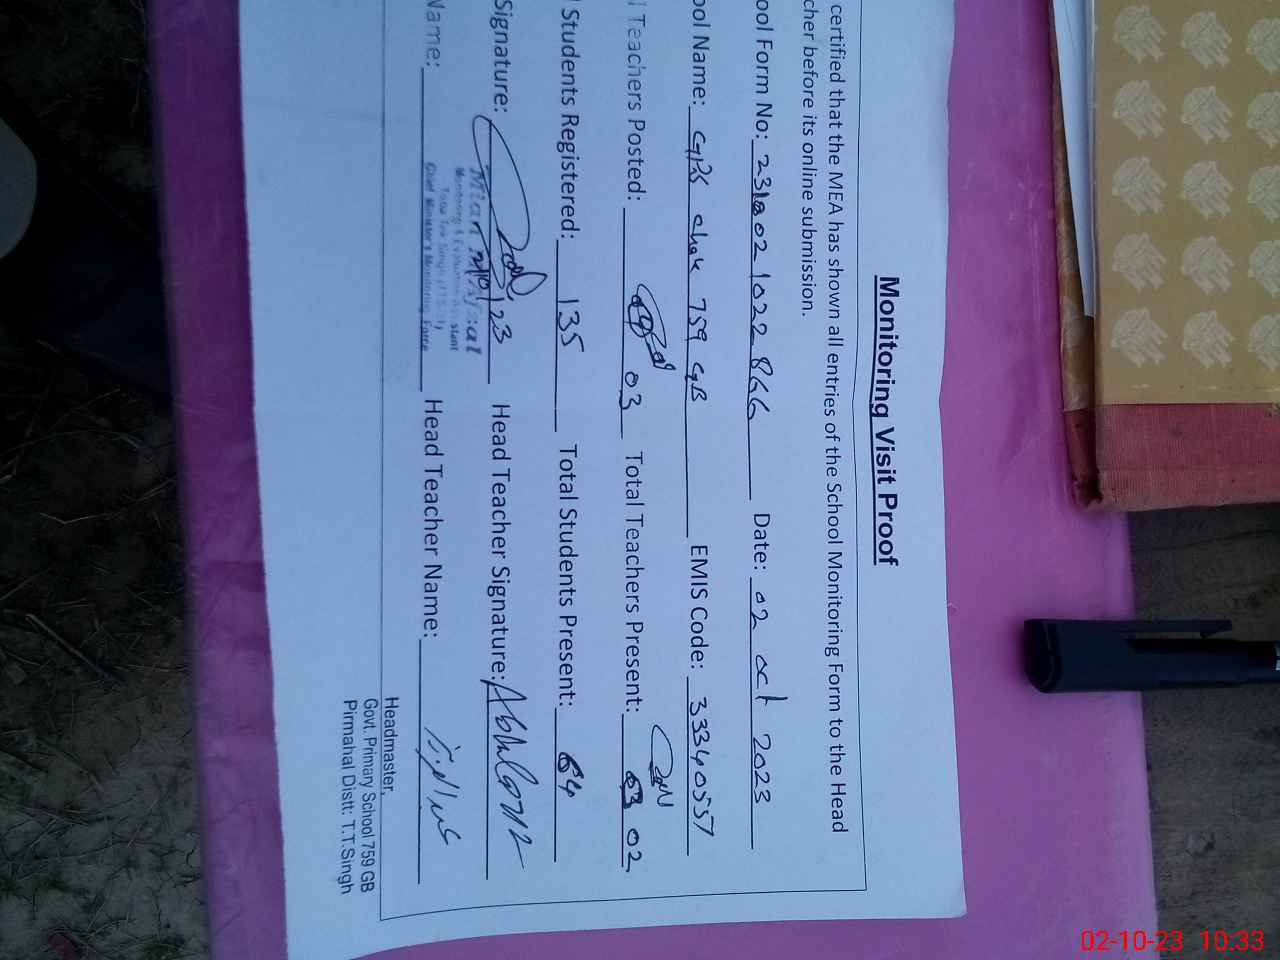 Monitoring Visit Proof
certified that the MEA has shown all entries of the School Monitoring Form to the Head
cher before its online submission.
ool Form No: 231002 1022 866 Date: 02 Oct 2023
ool Name: GPS chak 759 GB EMIS Code: 33340557
l Teachers Posted: 03 Total Teachers Present: 03 02
l Students Registered: 135 Total Students Present: 64
Signature: Head Teacher Signature:
Mian
Monitoring & Evaluation Assistant
Toba Tek Singh
Chief Minister's Monitoring Force
Name: Head Teacher Name:
Headmaster,
Govt. Primary School 759 GB
Pirmahal Distt: T.T.Singh
02-10-23 10:33